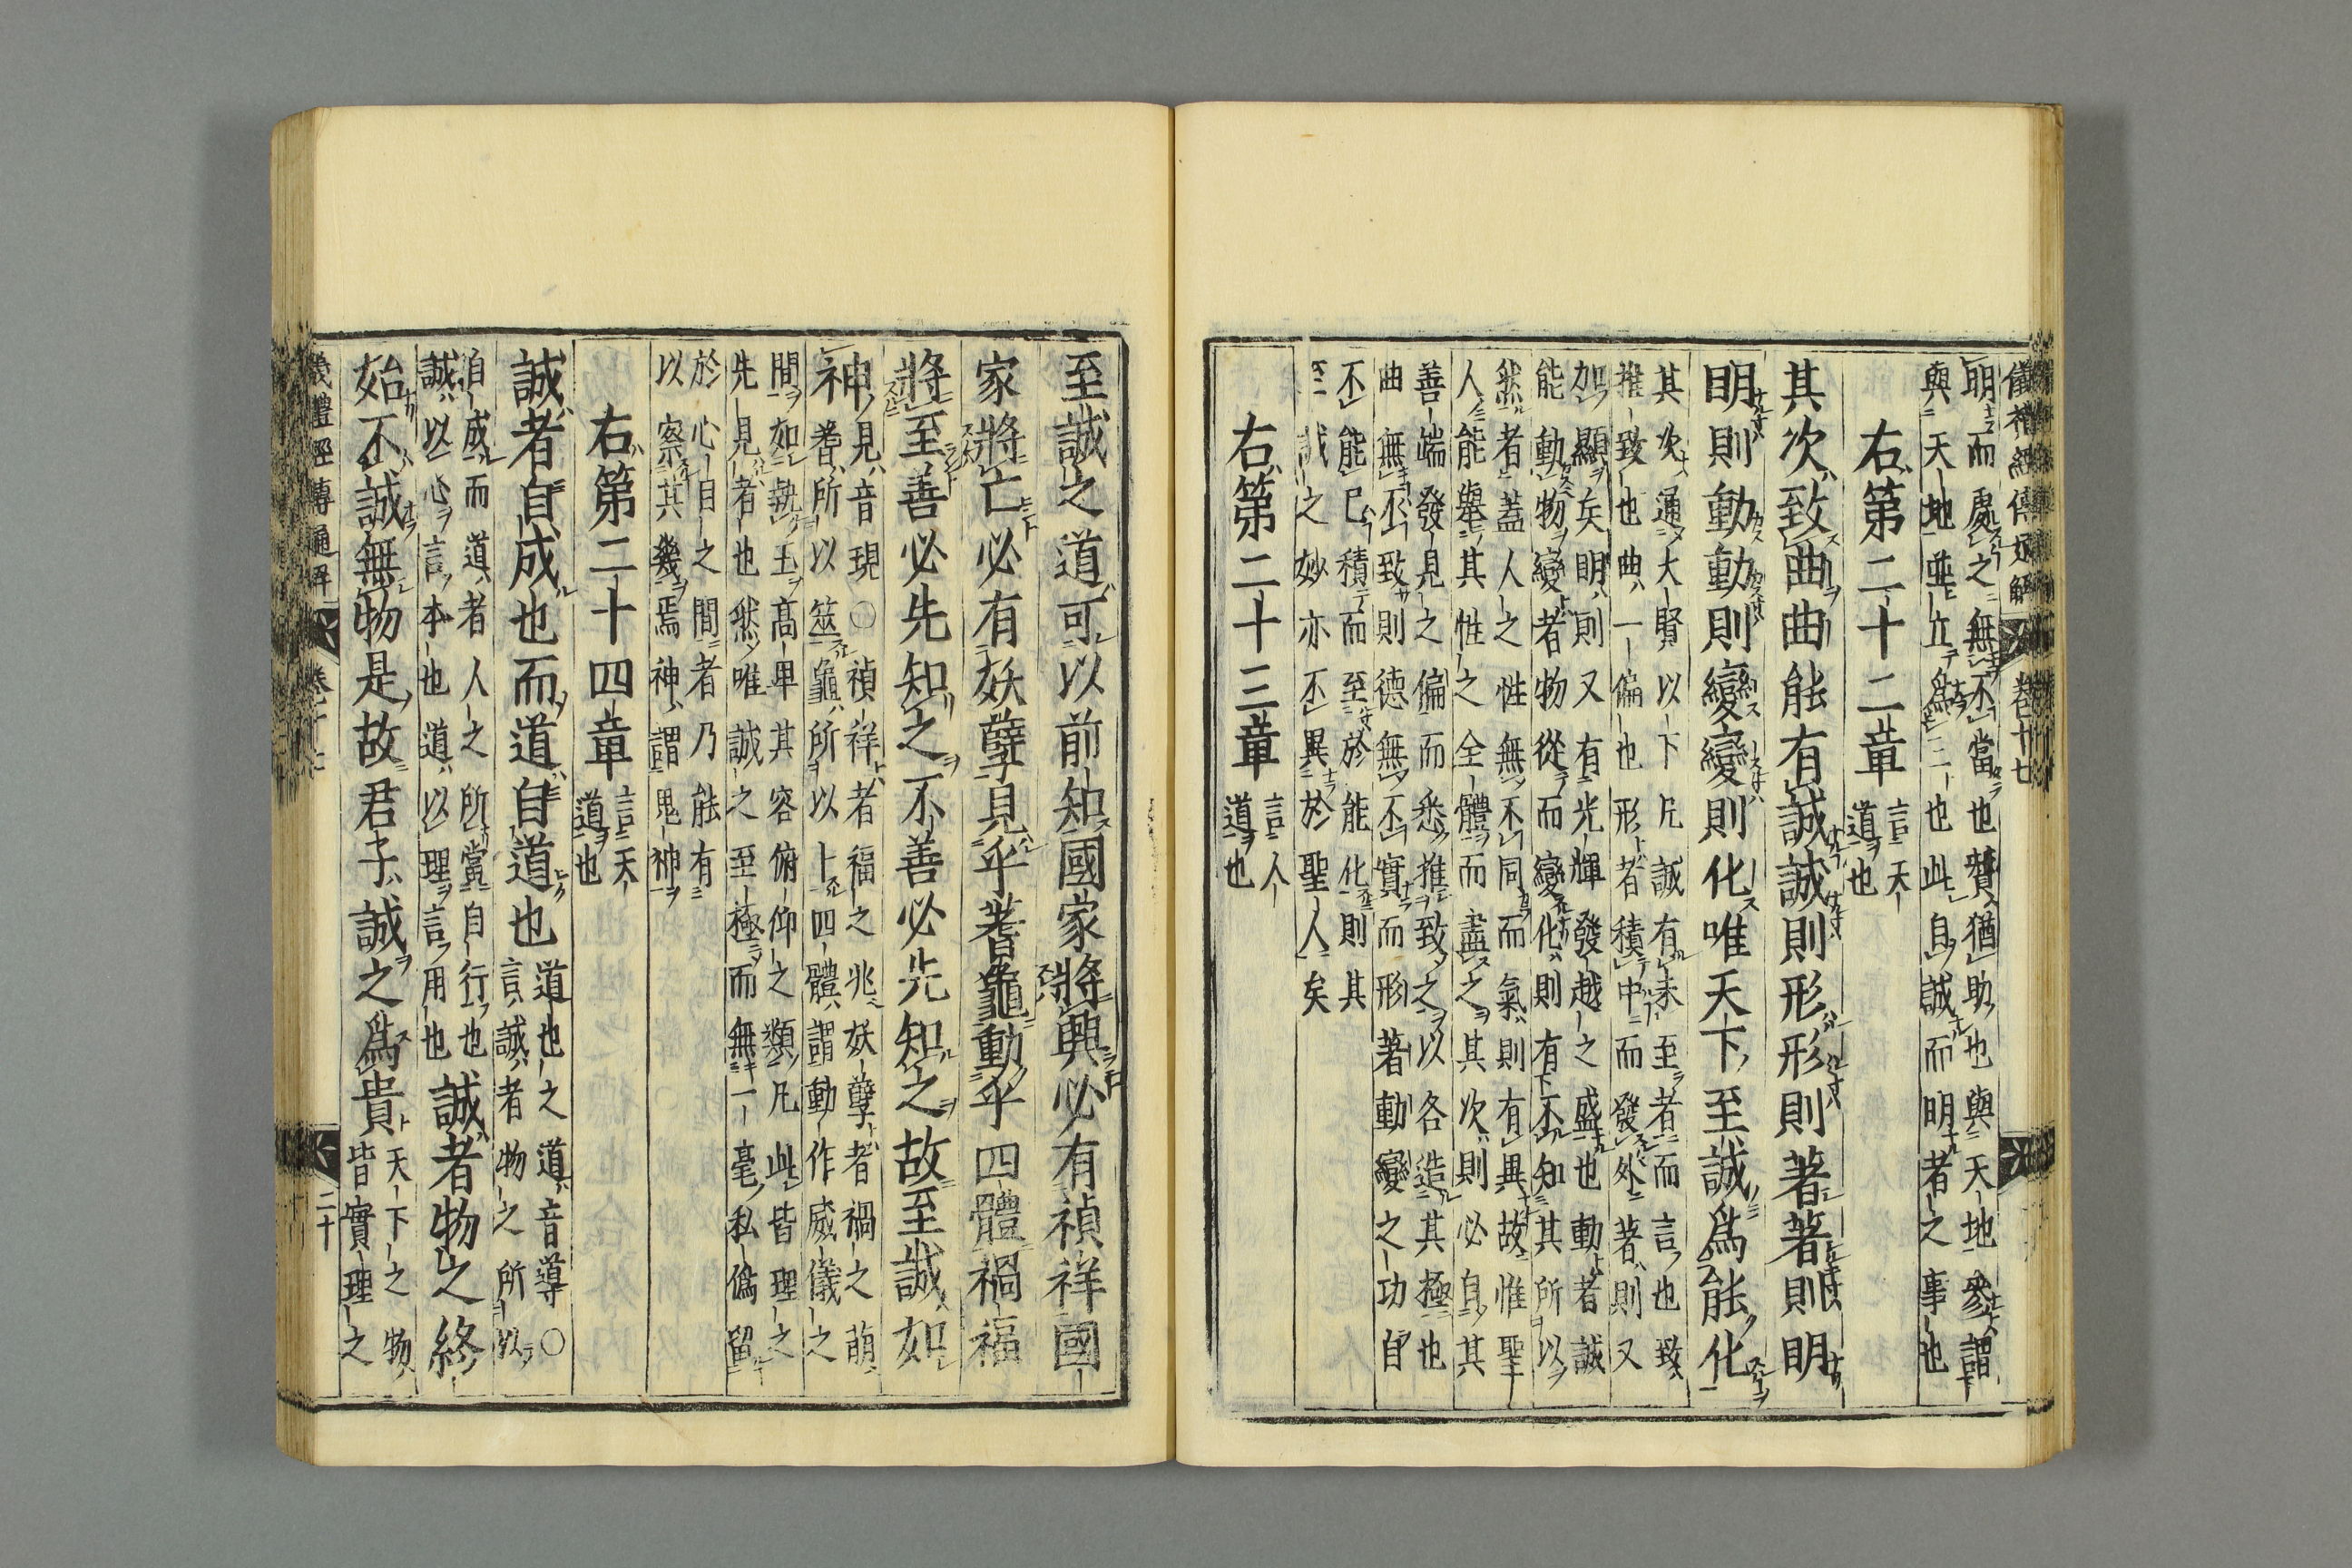 儀禮經傳通解 卷十七
明而處之無不當也贊猶助也與天地參謂
與天地並立爲三也此自誠而明者之事也
右第二十二章 言天
道也
其次致曲曲能有誠誠則形形則著著則明
明則動動則變變則化唯天下至誠爲能化
其次通大賢以下凡誠有未至者而言也致
推致也曲一偏也形者積中而發外著則又
加顯矣明則又有光輝發越之盛也動者誠
能動物變者物從而變化則有不知其所以
然者蓋人之性無不同而氣則有異故惟聖
人能舉其性之全體而盡之其次則必自其
善端發見之偏而悉推致之以各造其極也
曲無不致則德無不實而形著動變之功自
不能已積而至於能化則其
至誠之妙亦不異於聖人矣
右第二十三章 言人
道也
至誠之道可以前知國家將興必有禎祥國
家將亡必有妖孽見乎蓍龜動乎四體禍福
將至善必先知之不善必先知之故至誠如
神 見音現○禎祥者福之兆妖孽者禍之萌
蓍所以筮龜所以卜四體謂動作威儀之
間如執玉高卑其容俯仰之類凡此皆理之
先見者也然唯誠之至極而無一毫私僞留
於心目之間者乃能有
以察其幾焉神謂鬼神
右第二十四章 言天
道也
誠者自成也而道自道也 道也之道音導○
言誠者物之所以
自成而道者人之所當自行也
誠以心言本也道以理言用也 誠者物之終
始不誠無物是故君子誠之爲貴 天下之物
皆實理之
儀禮經傳通解 卷十七 二十